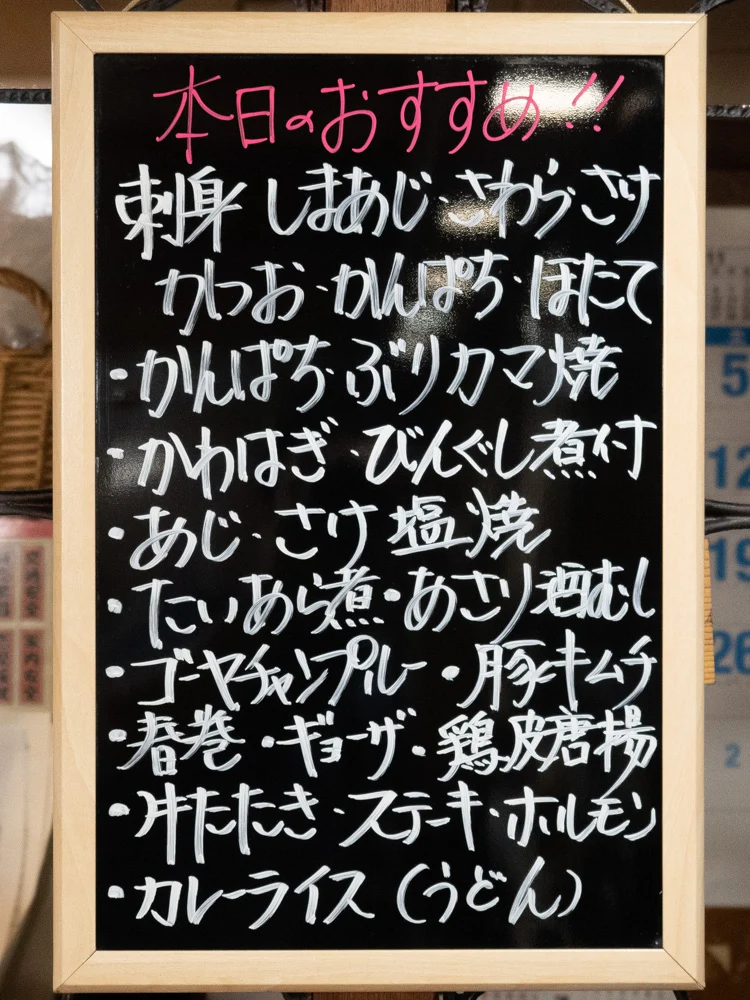 本日のおすすめ!!
刺身 しまあじ・さわら・さけ
かつお・かんぱち・ほたて
・かんぱち・ぶりカマ焼
・かわはぎ・びんぐし煮付
・あじ・さけ 塩焼
・たいあら煮・あさり酒むし
・ゴーヤチャンプルー・豚キムチ
・春巻・ギョーザ・鶏皮唐揚
・牛たたき・ステーキ・ホルモン
・カレーライス(うどん)
5
12
19
26
2